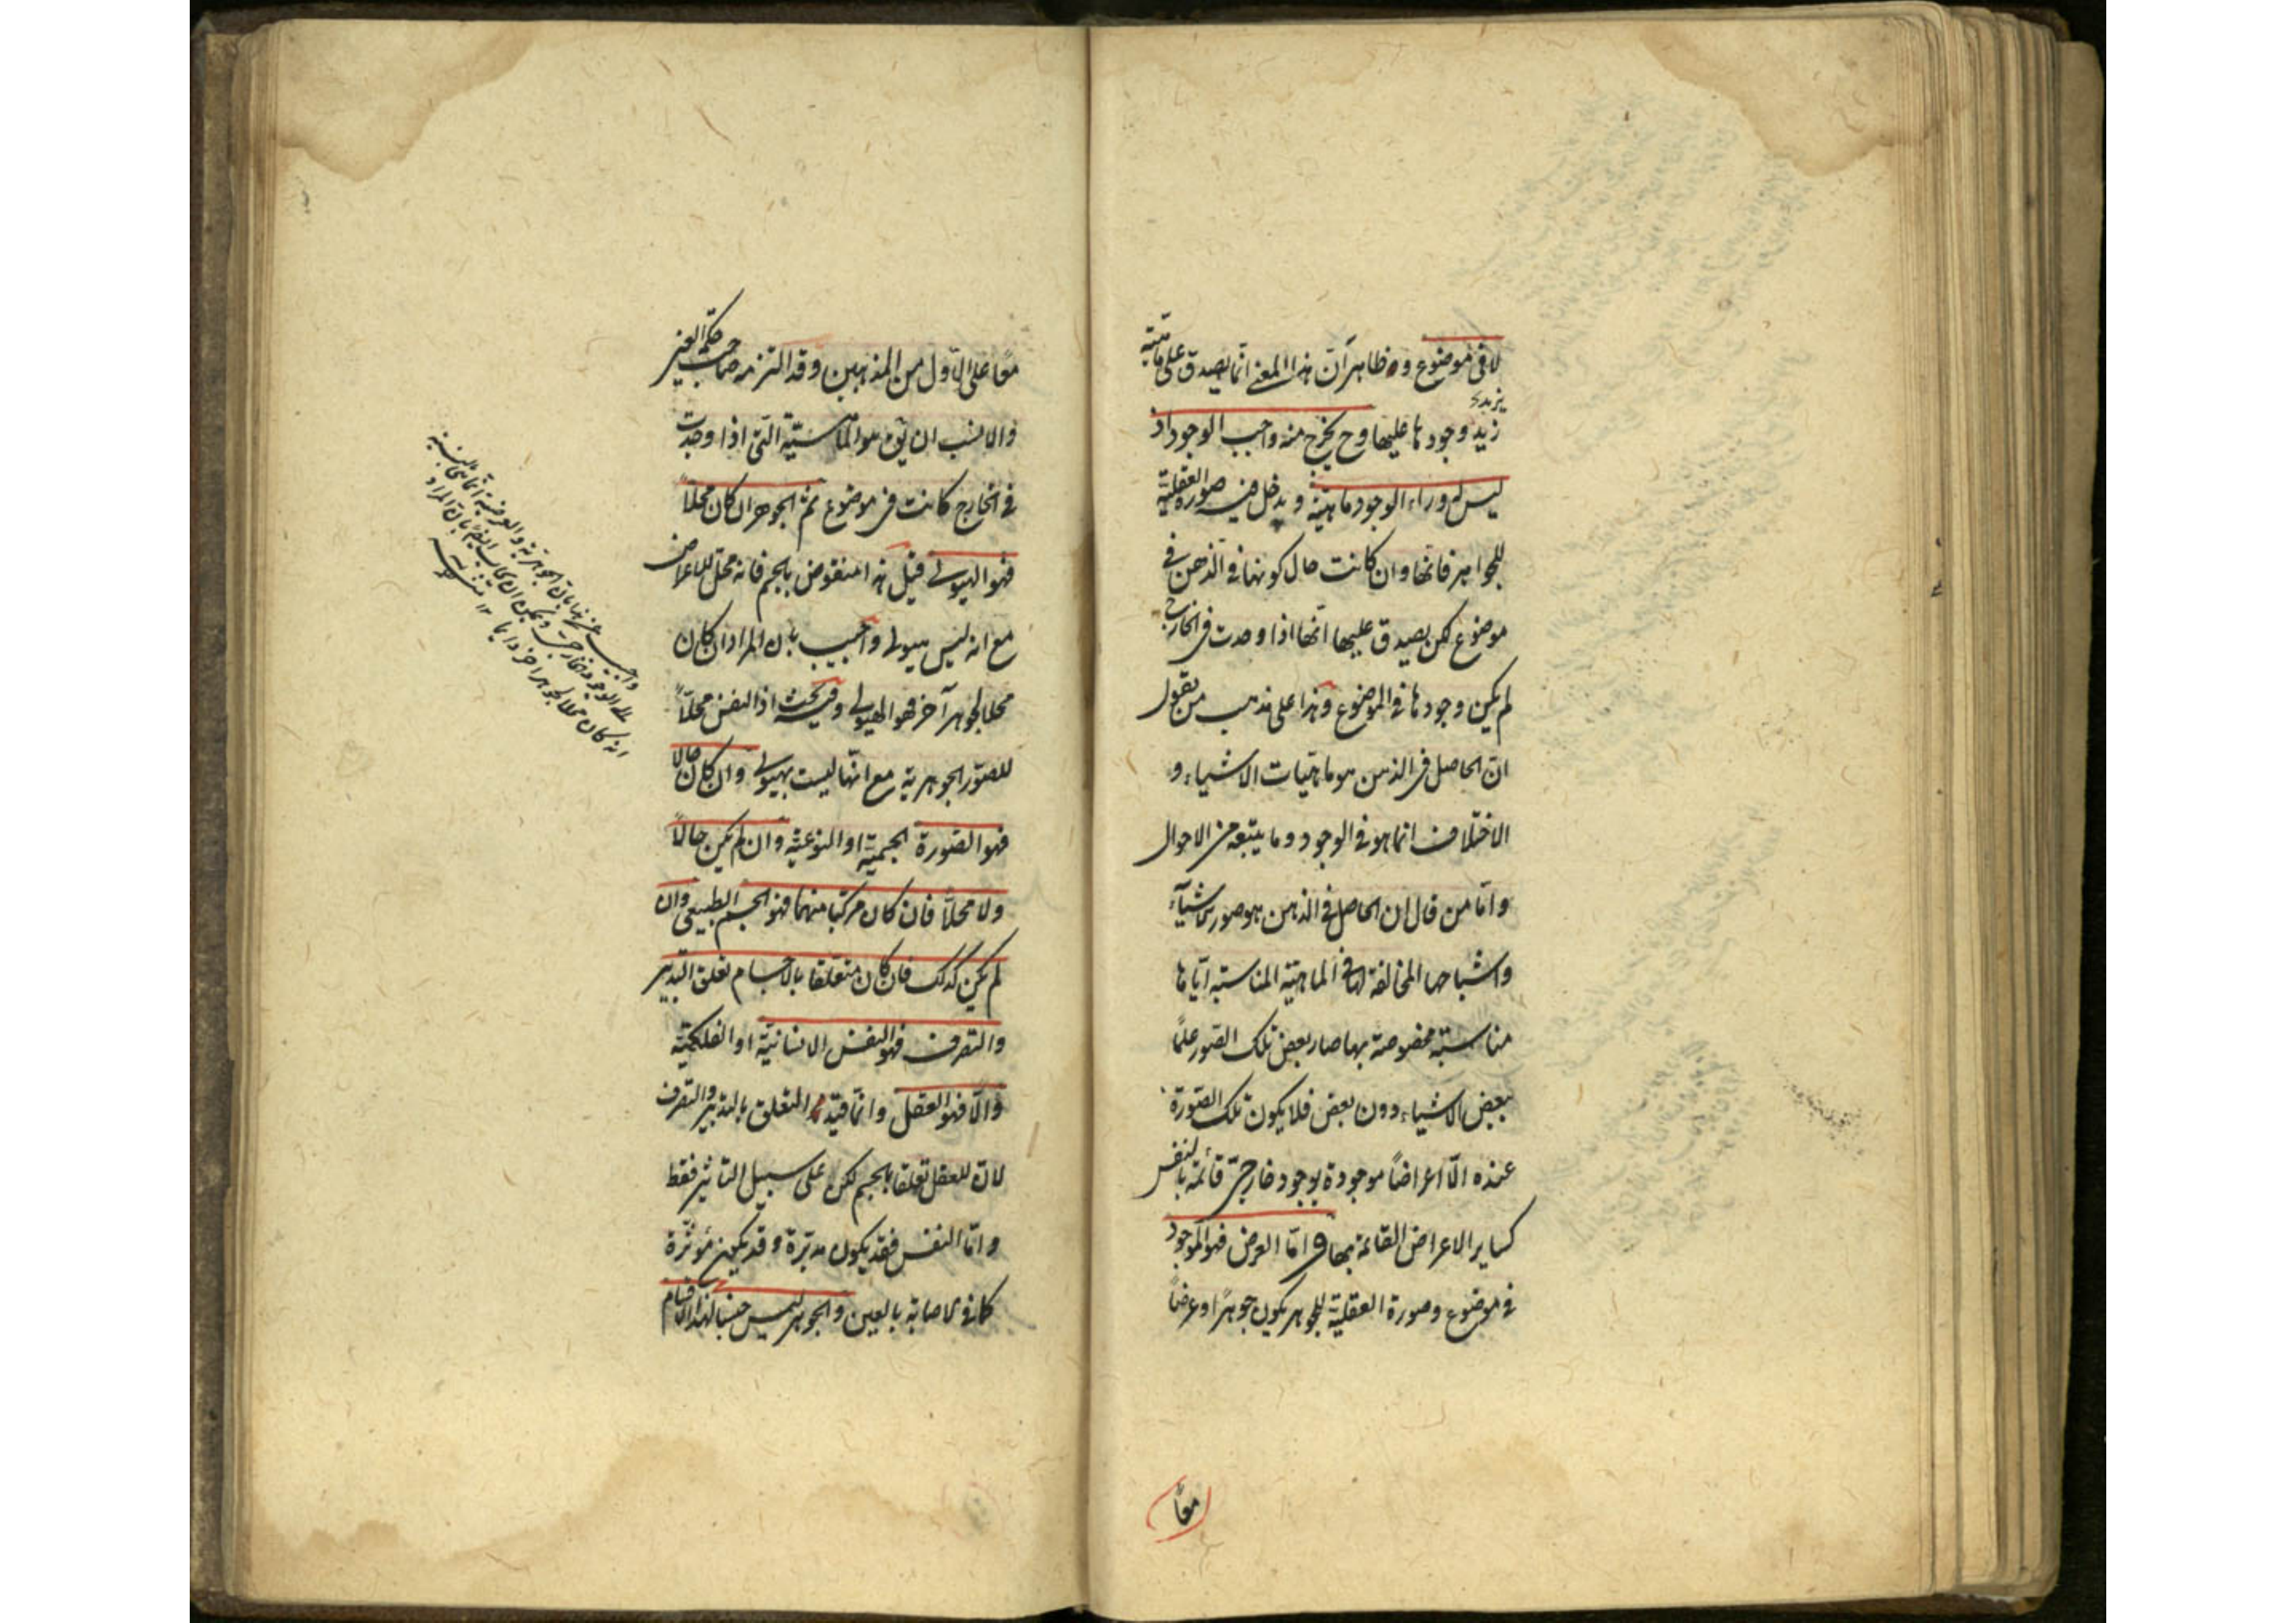 لا فى موضوع وظاهر آن هذا المعنى انما يصدق على ماهية
يزيد
زيد وجودها عليها وح يخرج منه واجب الوجود اذ
ليس له وراء الوجود ماهيّة ويدخل فيه صورة العقلية
للجواهر فانها وان كانت حال كونها فى الذهن فى
موضوع لكن يصدق عليها انها اذا وجدت فى الخارج
لم يكن وجودها فى الموضوع وهذا على مذهب من يقول
ان الحاصل فى الذهن هو ماهيات الاشياء و
الاختلاف انما هو فى الوجود وما يتبعه من الاحوال
وامّا من قال ان الحاصل فى الذهن هو صور الاشياء
واشباحها المخالفة لها فى الماهيّة المناسبة ايّاها
مناسبة مخصوصة بها صار بعض تلك الصور علمًا
ببعض الاشياء دون بعض فلا يكون تلك الصّورة
عنده الّا اعراضًا موجودة بوجود خارجىّ قائمة بالنفس
كساير الاعراض القائمة بها وامّا العرض فهو الموجود
فى موضوع وصورة العقليّة للجوهر يكون جوهرًا وعرضًا
معًا
معًا على الاوّل من المذهبين وقد التزمه صاحب حكمة العين
والانسب ان يق هو الماهيّة التى اذا وجدت
فى الخارج كانت فى موضوع ثم الجوهر ان كان محلاً
فهو الهيولى قيل هذا منقوض بالجسم فانه محل للاعراض
مع انه ليس هيولى واجيب بان المراد ان كان
محلا لجوهر آخر فهو الهيولى وفيه بحث اذ النفس محلاً
للصّور الجوهرية مع انها ليست بهيولى وان كان حالا
فهو الصّورة الجسمية او النوعيّة وان لم يكن حالاً
ولا محلاً فان كان مركبا منهما فهو الجسم الطبيعى وان
لم يكن كذلك فان كان متعلقا بالاجسام تعلق التدبير
والتصرف فهو النفس الانسانيّة او الفلكيّة
والّا فهو العقل وانّما قيّد التعلق بالتدبير والتصرف
لان للعقل تعلقا بالجسم لكن على سبيل التاثير فقط
وامّا النفس فقد يكون مدبّرة وقد يكون مؤثّرة
كما فى الاصابة بالعين والجوهر ليس جنسا لهذه الاقسام
واجيب عنه بان الجوهرية والعرضية انما هى بالنسبة
الى الوجود الخارجى ويمكن ان يجاب ايضا بان المراد
انه كان محلا لجوهر آخر دايما ١٢